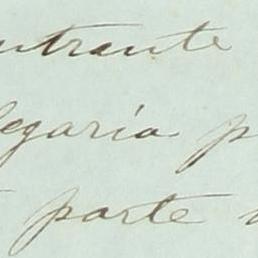 entrante
legaria p
parte